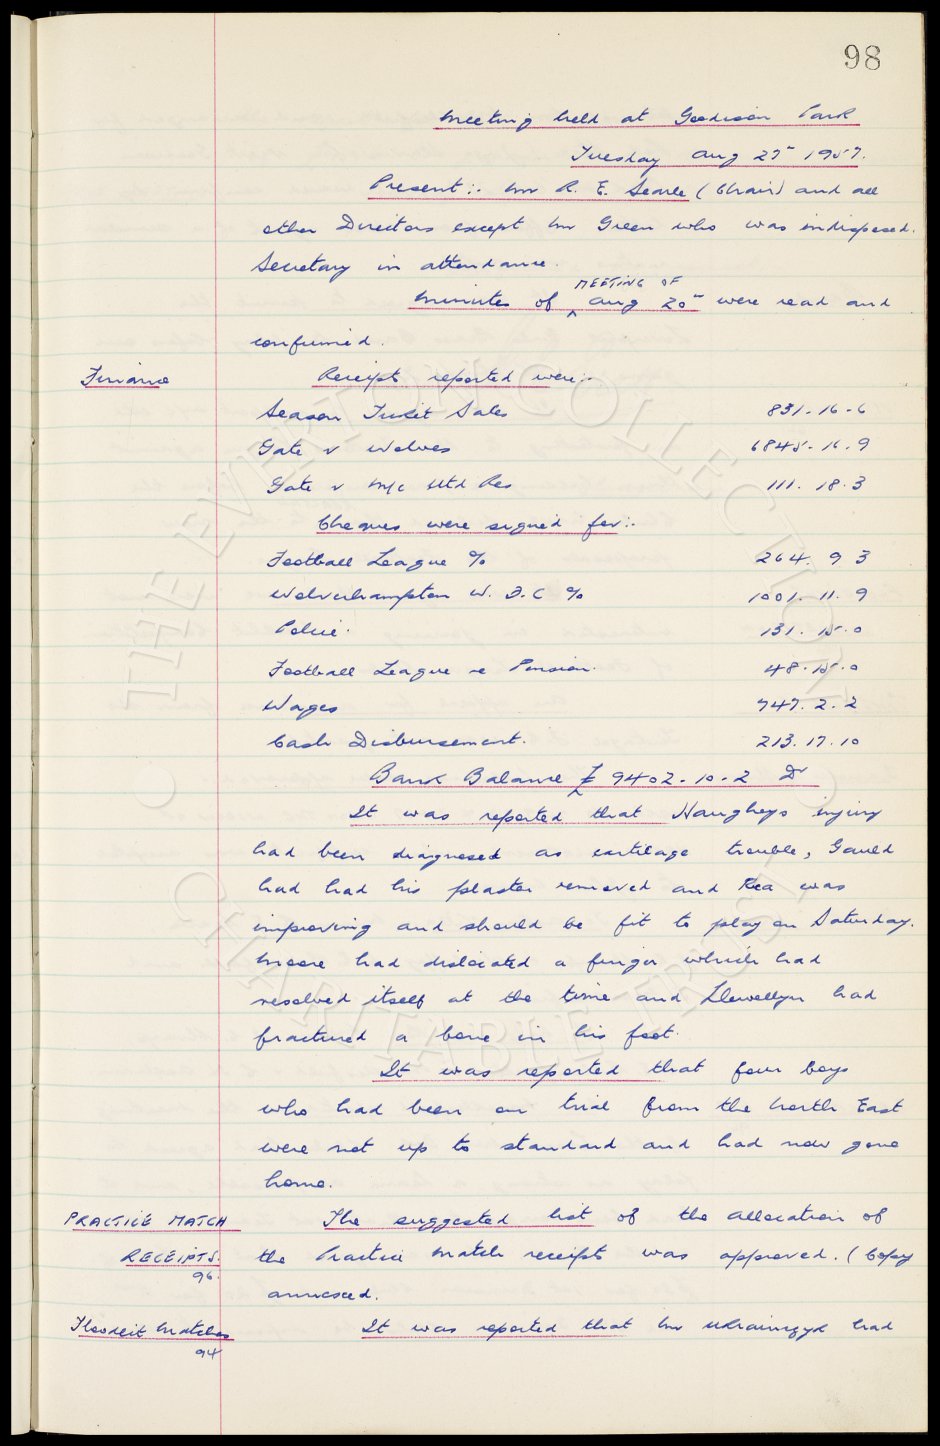 98
Meeting held at Goodison Park
Tuesday Aug 27th 1957.
Present:- Mr R. E. Searle (Chair) and all
other Directors except Mr Green who was indisposed.
Secretary in attendance.
MEETING OF
Minutes of ^ Aug 20th were read and
confirmed.
Finance
Receipts reported were:-
Season Ticket Sales 831-16-6
Gate v Wolves 6845-16-9
Gate v M/c Utd Res 111.18.3
Cheques were signed for:-
Football League % 264. 9 3
Wolverhampton W. F. C % 1001. 11. 9
Police. 131. 15.0
Football League re Pension. 48.15.0
Wages 747.2.2
Cash Disbursement. 213.17.10
Bank Balance £ 9402-10-2 Dr
It was reported that Haugheys injury
had been diagnosed as cartilage trouble, Gauld
had had his plaster removed and Rea was
improving and should be fit to play on Saturday.
Moore had dislocated a finger which had
resolved itself at the time and Llewellyn had
fractured a bone in his foot.
It was reported that four boys
who had been on trial from the North East
were not up to standard and had now gone
home.
PRACTICE MATCH
RECEIPTS.
96.
The suggested list of the allocation of
the Practice Match receipts was approved. (Copy
annexed.
Floodlit Matches
94
It was reported that Mr had
© THE EVERTON COLLECTION
CHARITABLE TRUST